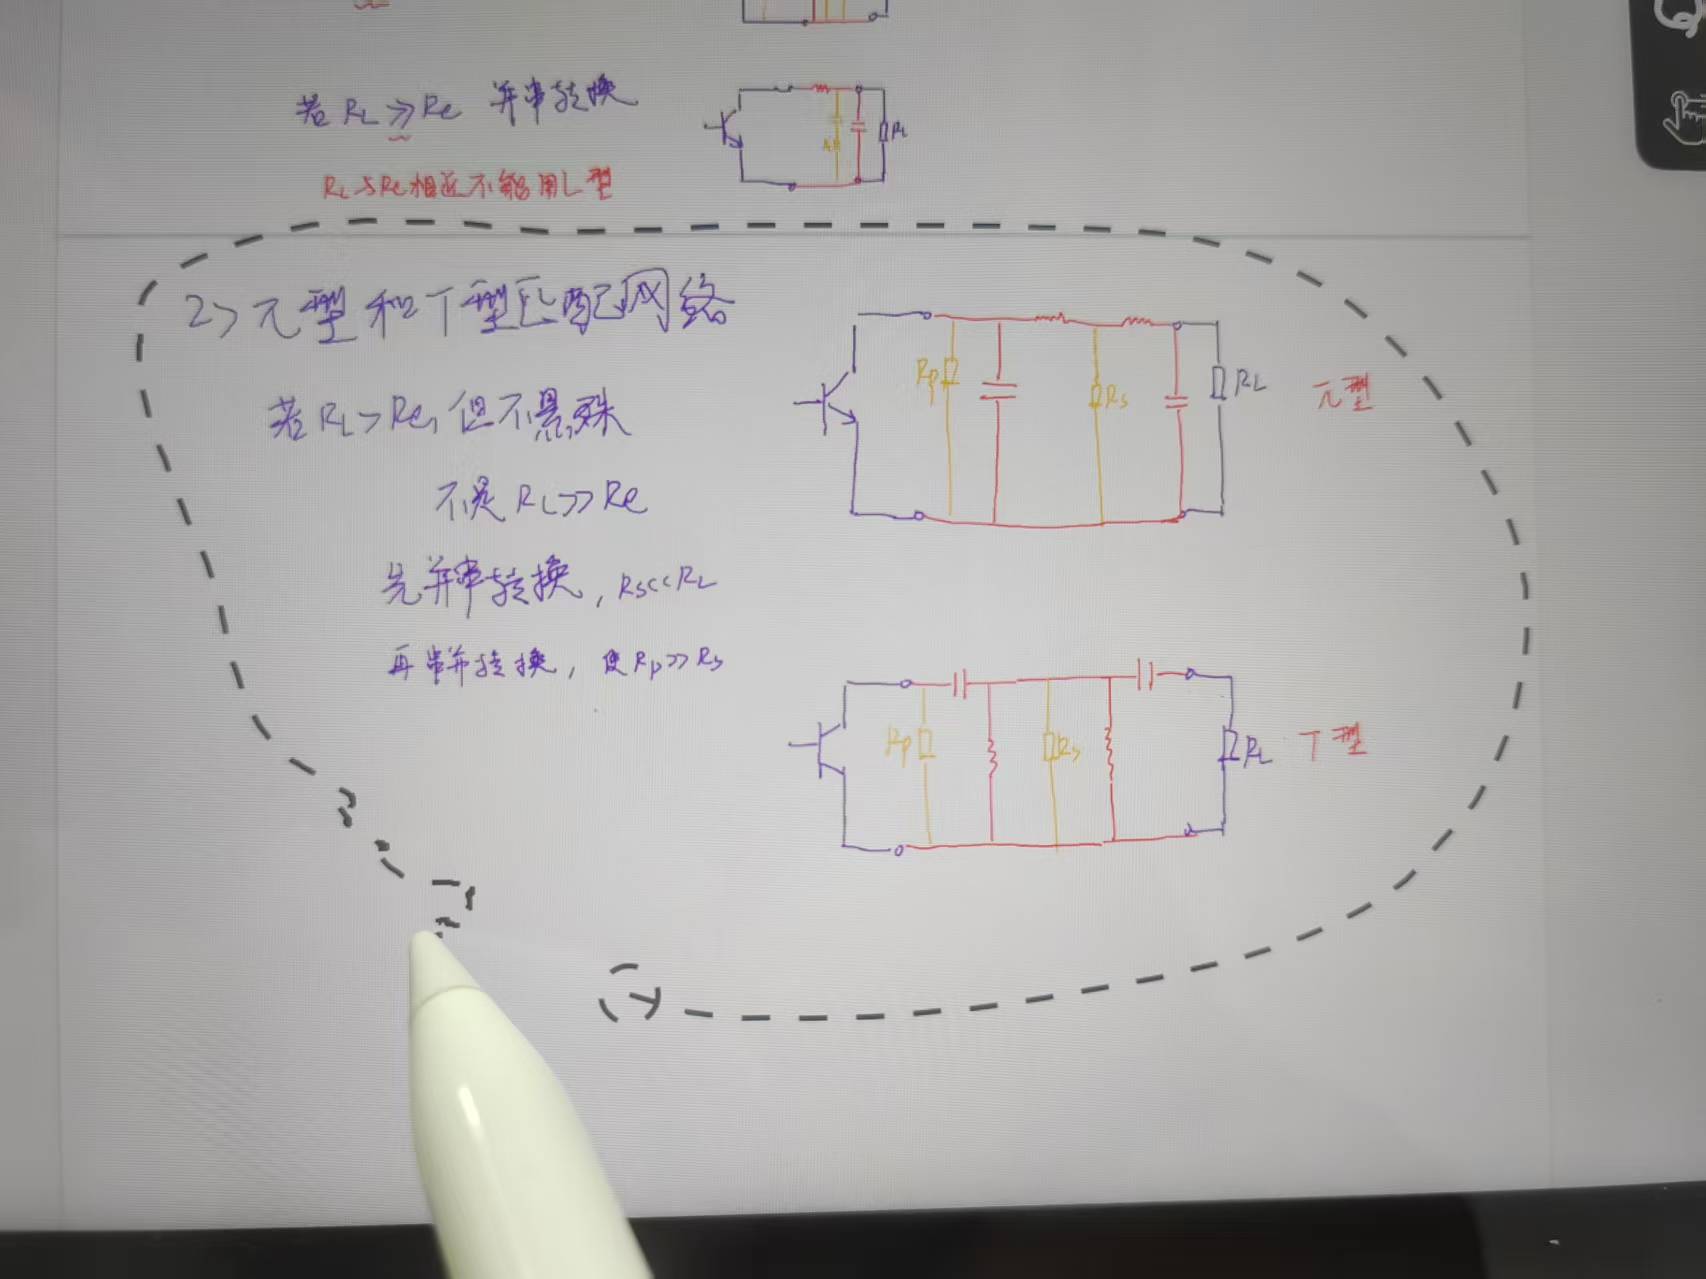 若 RL >> Re 并串转换
RL
RL与Re相近不能用L型
2> π型和T型匹配网络
若RL>Re, 但不悬殊
不是RL>>Re
先并串转换, Rs<<RL
再串并转换, 使Rp>>Rs
Rp Rs RL π型
Rp Rs RL T型